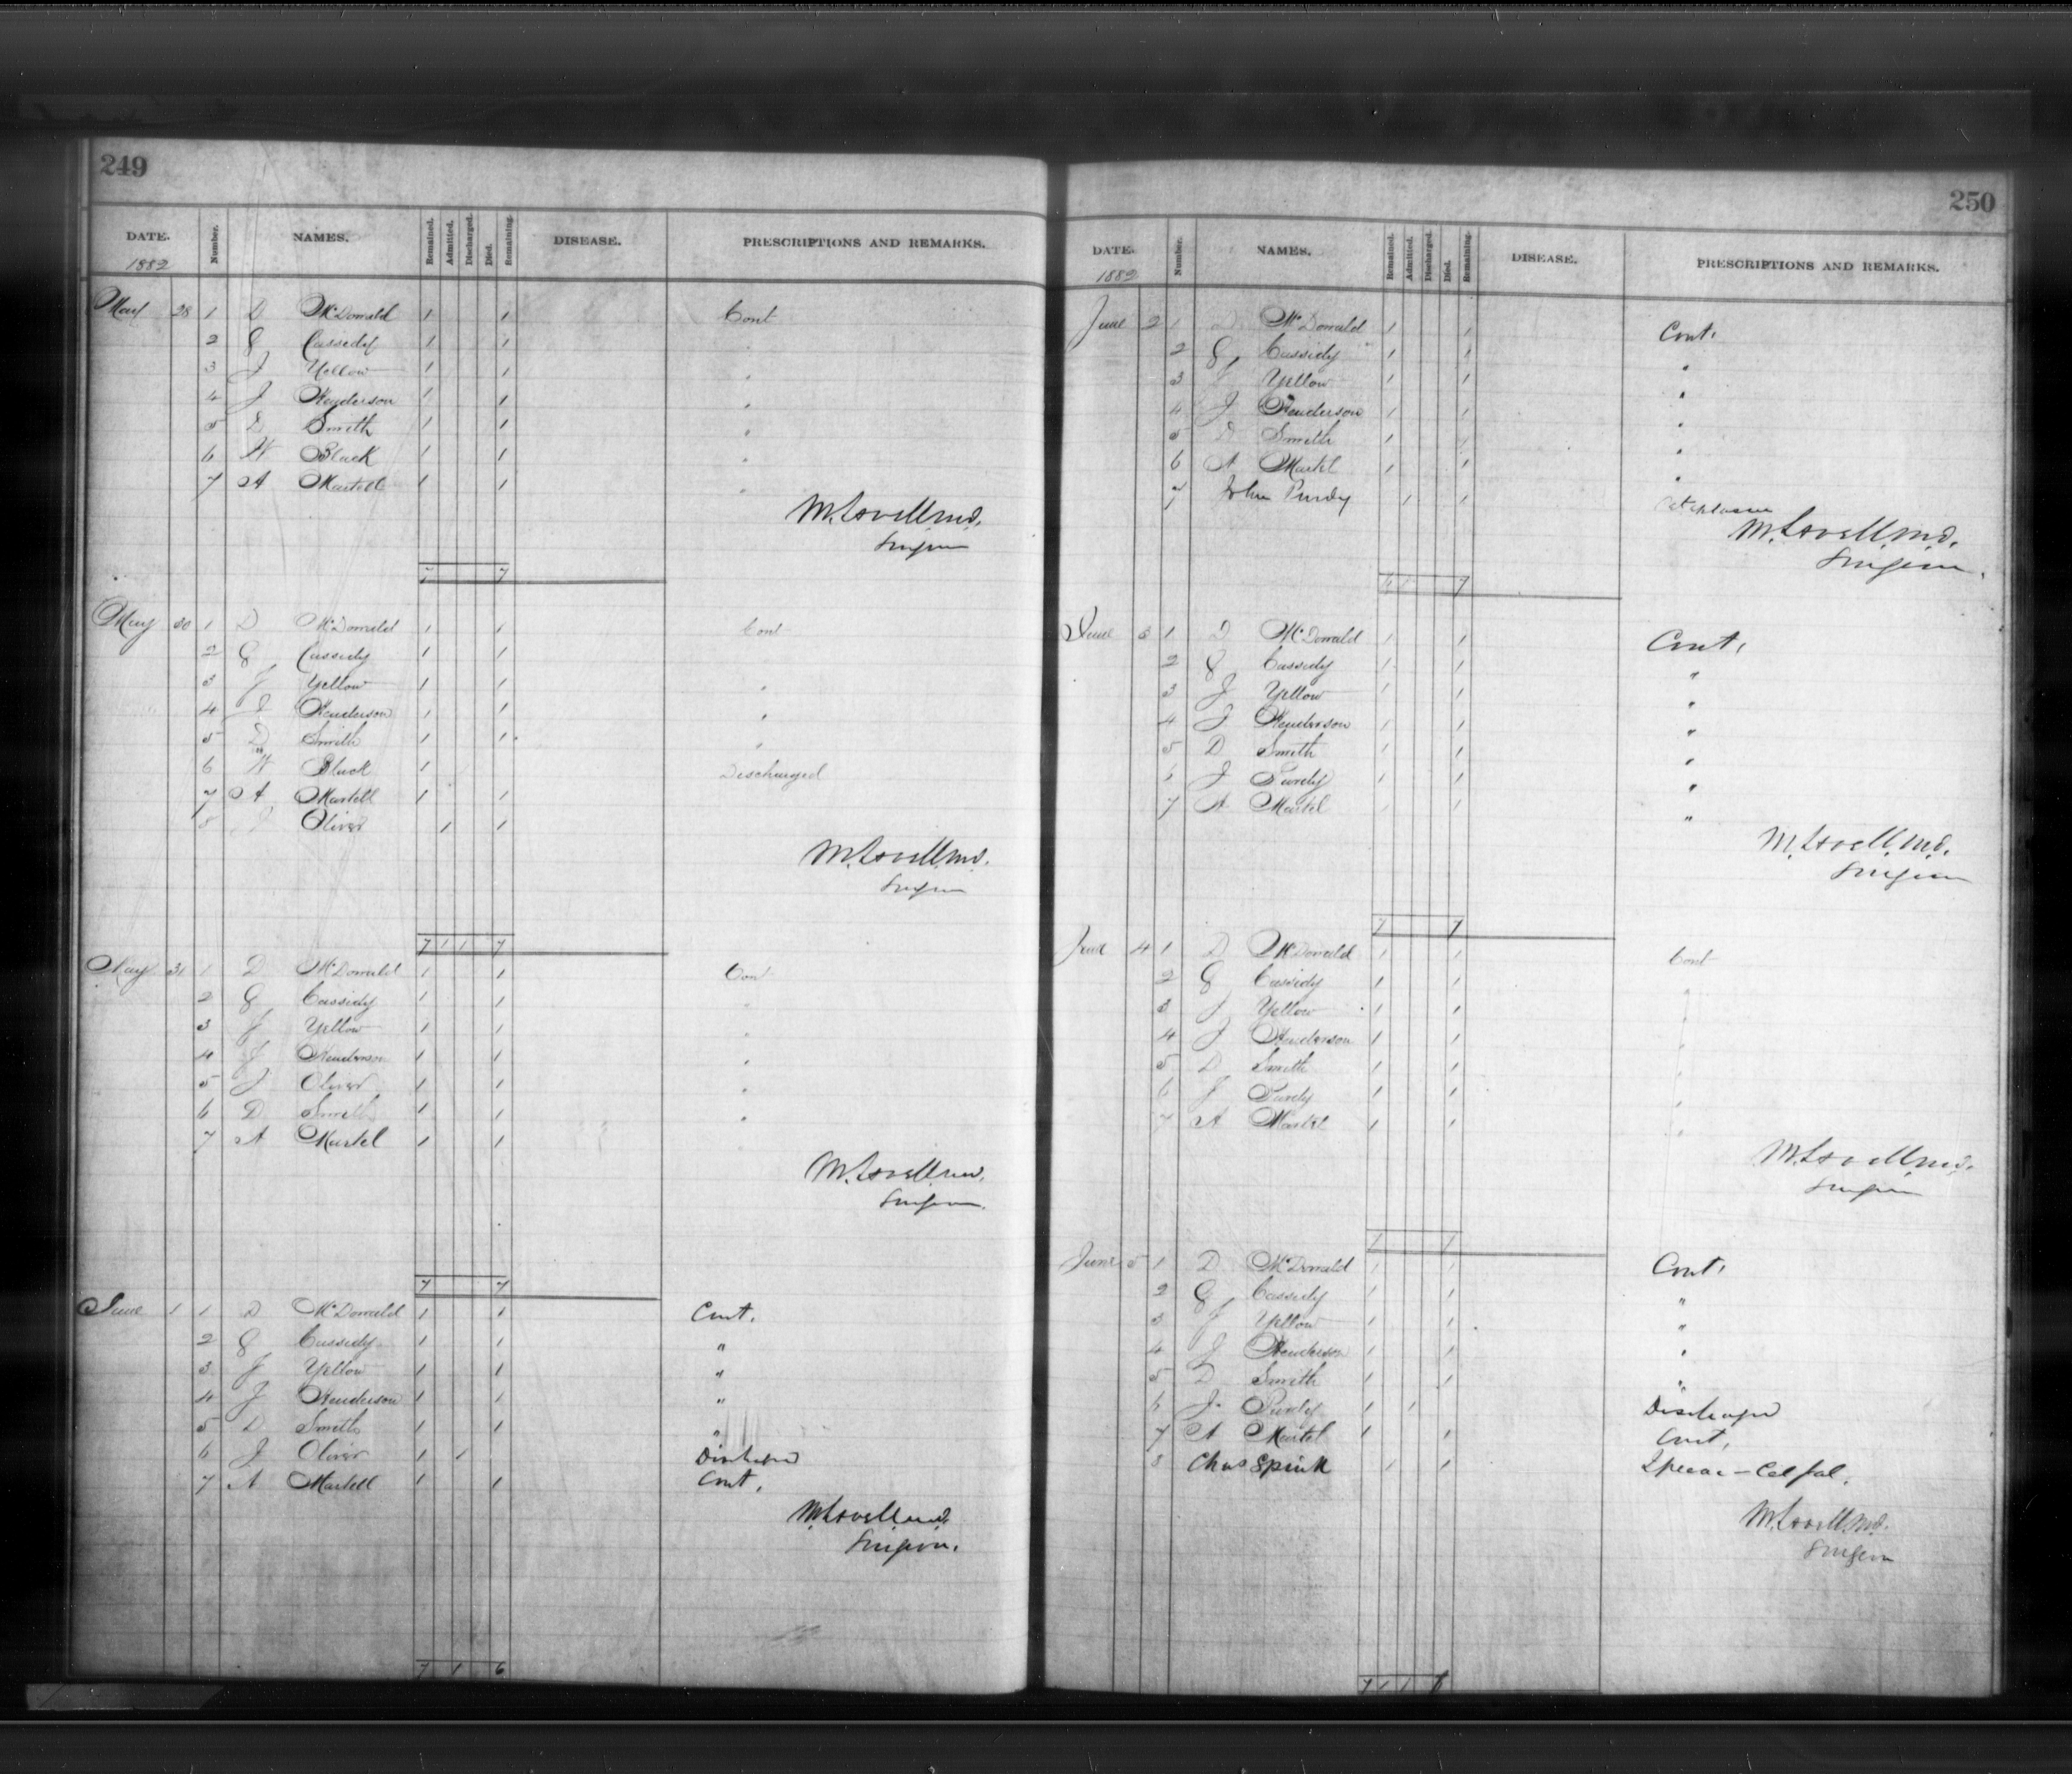 249
DATE. Number. NAMES. Remained. Admitted. Discharged. Died. Remaining. DISEASE. PRESCRIPTIONS AND REMARKS.
1882
May 28 1 D McDonald 1 1 Cont
2 G Cassidy 1 1 "
3 J Yellow 1 1 "
4 J Henderson 1 1 "
5 D Smith 1 1 "
6 W Black 1 1 "
7 A Martell 1 1 "
M. Lovell M.D.
Surgeon
7 7
May 30 1 D McDonald 1 1 Cont
2 G Cassidy 1 1
3 J Yellow 1 1 "
4 J Henderson 1 1 "
5 D Smith 1 1 "
6 W Black 1 Discharged
7 A Martell 1 1
8 J Oliver 1 1
M. Lovell M.D.
Surgeon
7 1 1 7
May 31 1 D McDonald 1 1 Cont
2 G Cassidy 1 1 "
3 J Yellow 1 1 "
4 J Henderson 1 1 "
5 J Oliver 1 1 "
6 D Smith 1 1 "
7 A Martel 1 1
M. Lovell M.D.
Surgeon.
7 7
June 1 1 D McDonald 1 1 Cont.
2 G Cassidy 1 1 "
3 J Yellow 1 1 "
4 J Henderson 1 1 "
5 D Smith 1 1 "
6 J Oliver 1 1 Discharged
7 A Martell 1 1 Cont.
M. Lovell M.D.
Surgeon.
7 1 6
250
DATE. Number. NAMES. Remained. Admitted. Discharged. Died. Remaining. DISEASE. PRESCRIPTIONS AND REMARKS.
1882
June 2 1 D McDonald 1 1 Cont.
2 G Cassidy 1 1 "
3 J Yellow 1 1 "
4 J Henderson 1 1 "
5 D Smith 1 1 "
6 A Martel 1 1 "
7 John Purdy 1 1
M. Lovell M.D.
Surgeon.
6 1 7
June 3 1 D McDonald 1 1 Cont.
2 G Cassidy 1 1 "
3 J Yellow 1 1 "
4 J Henderson 1 1 "
5 D Smith 1 1 "
6 J Purdy 1 1 "
7 A Martel 1 1 "
M. Lovell M.D.
Surgeon
7 7
June 4 1 D McDonald 1 1 Cont
2 G Cassidy 1 1 "
3 J Yellow 1 1 "
4 J Henderson 1 1 "
5 D Smith 1 1 "
6 J Purdy 1 1 "
7 A Martel 1 1 "
M. Lovell M.D.
Surgeon
7 7
June 5 1 D McDonald 1 1 Cont.
2 G Cassidy 1 1 "
3 J Yellow 1 1 "
4 J Henderson 1 1 "
5 D Smith 1 1 "
6 J. Purdy 1 1 Discharged
7 A Martel 1 1 Cont.
8 Chas Spink 1 1
M. Lovell M.D.
Surgeon
7 1 1